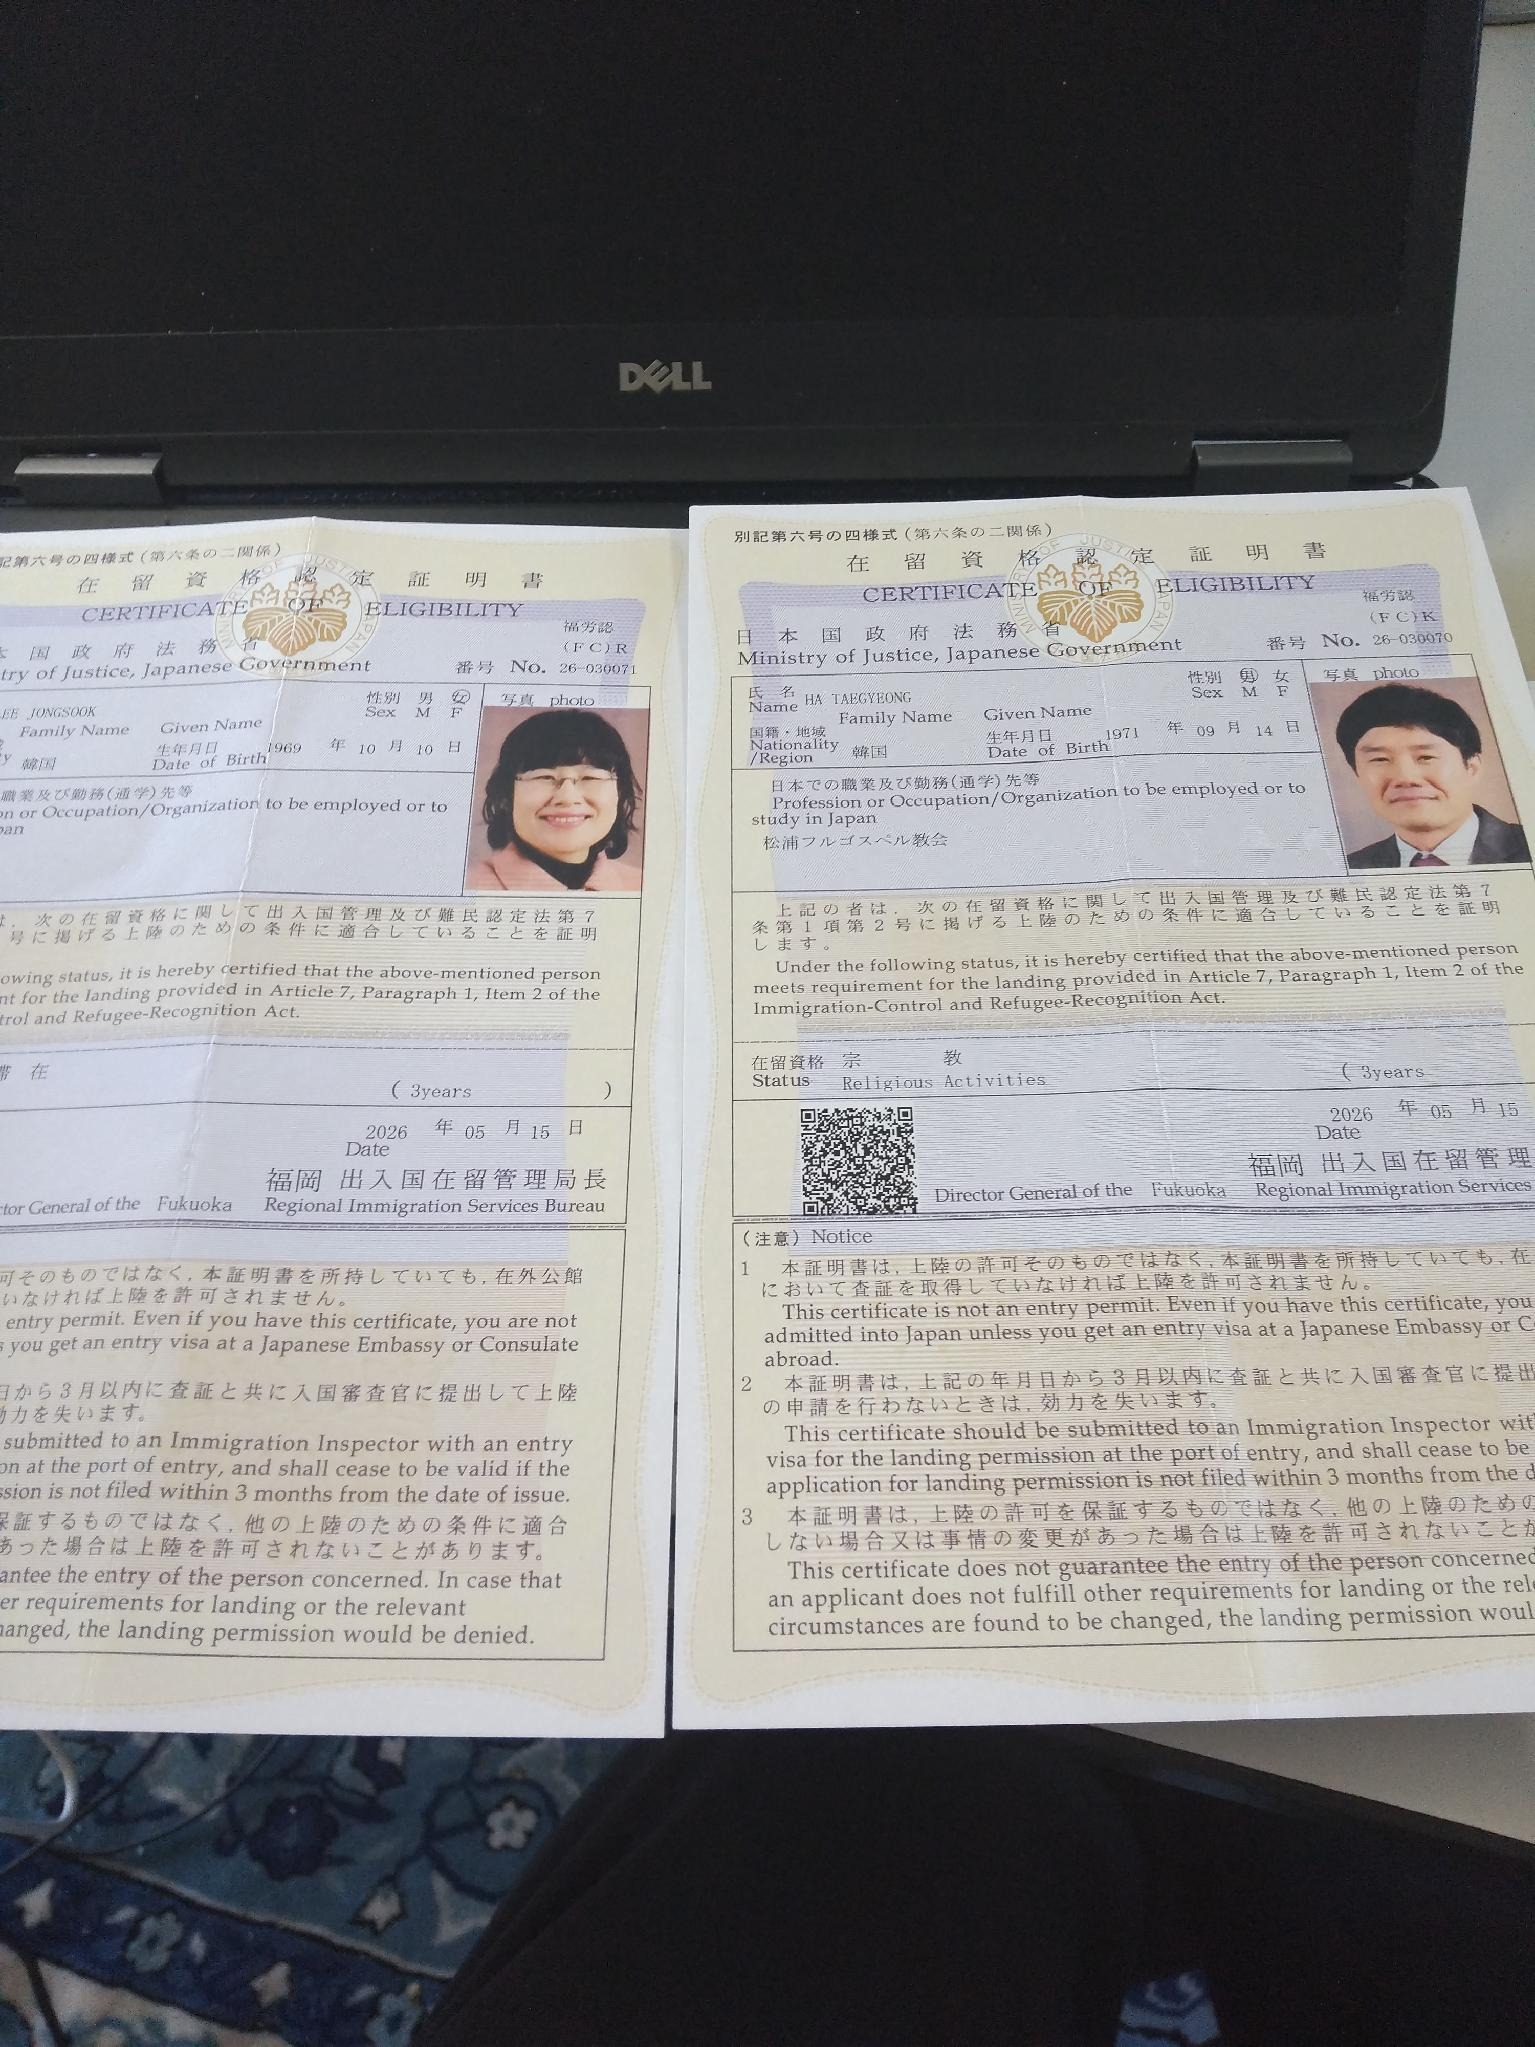 DELL
記第六号の四様式(第六条の二関係)
在留資格認定証明書
CERTIFICATE OF ELIGIBILITY
福労認
(FC)R
本国政府法務省
try of Justice, Japanese Government
番号 No. 26-030071
性別 男 女
Sex M F
写真 photo
EE JONGSOOK
Family Name Given Name
韓国
生年月日 1969 年 10 月 10 日
Date of Birth
職業及び勤務(通学)先等
on or Occupation/Organization to be employed or to
pan
は、次の在留資格に関して出入国管理及び難民認定法第7
号に掲げる上陸のための条件に適合していることを証明
owing status, it is hereby certified that the above-mentioned person
nt for the landing provided in Article 7, Paragraph 1, Item 2 of the
trol and Refugee-Recognition Act.
滞在
( 3years )
2026 年 05 月 15 日
Date
福岡 出入国在留管理局長
ctor General of the Fukuoka Regional Immigration Services Bureau
可そのものではなく、本証明書を所持していても、在外公館
いなければ上陸を許可されません。
entry permit. Even if you have this certificate, you are not
s you get an entry visa at a Japanese Embassy or Consulate
日から3月以内に査証と共に入国審査官に提出して上陸
効力を失います。
submitted to an Immigration Inspector with an entry
on at the port of entry, and shall cease to be valid if the
ssion is not filed within 3 months from the date of issue.
保証するものではなく、他の上陸のための条件に適合
あった場合は上陸を許可されないことがあります。
antee the entry of the person concerned. In case that
er requirements for landing or the relevant
hanged, the landing permission would be denied.
別記第六号の四様式(第六条の二関係)
在留資格認定証明書
CERTIFICATE OF ELIGIBILITY
福労認
(FC)K
日本国政府法務省
Ministry of Justice, Japanese Government
番号 No. 26-030070
氏名
Name HA TAEGYEONG
Family Name Given Name
性別 男 女
Sex M F
写真 photo
国籍・地域
Nationality
/Region 韓国
生年月日 1971 年 09 月 14 日
Date of Birth
日本での職業及び勤務(通学)先等
Profession or Occupation/Organization to be employed or to
study in Japan
松浦フルゴスペル教会
上記の者は、次の在留資格に関して出入国管理及び難民認定法第7
条第1項第2号に掲げる上陸のための条件に適合していることを証明
します。
Under the following status, it is hereby certified that the above-mentioned person
meets requirement for the landing provided in Article 7, Paragraph 1, Item 2 of the
Immigration-Control and Refugee-Recognition Act.
在留資格 宗教
Status Religious Activities
( 3years
2026 年 05 月 15
Date
福岡 出入国在留管理
Director General of the Fukuoka Regional Immigration Services
(注意) Notice
1 本証明書は、上陸の許可そのものではなく、本証明書を所持していても、在
において査証を取得していなければ上陸を許可されません。
This certificate is not an entry permit. Even if you have this certificate, you
admitted into Japan unless you get an entry visa at a Japanese Embassy or Co
abroad.
2 本証明書は、上記の年月日から3月以内に査証と共に入国審査官に提出
の申請を行わないときは、効力を失います。
This certificate should be submitted to an Immigration Inspector wit
visa for the landing permission at the port of entry, and shall cease to be
application for landing permission is not filed within 3 months from the d
3 本証明書は、上陸の許可を保証するものではなく、他の上陸のための
しない場合又は事情の変更があった場合は上陸を許可されないことが
This certificate does not guarantee the entry of the person concerned
an applicant does not fulfill other requirements for landing or the rele
circumstances are found to be changed, the landing permission woul